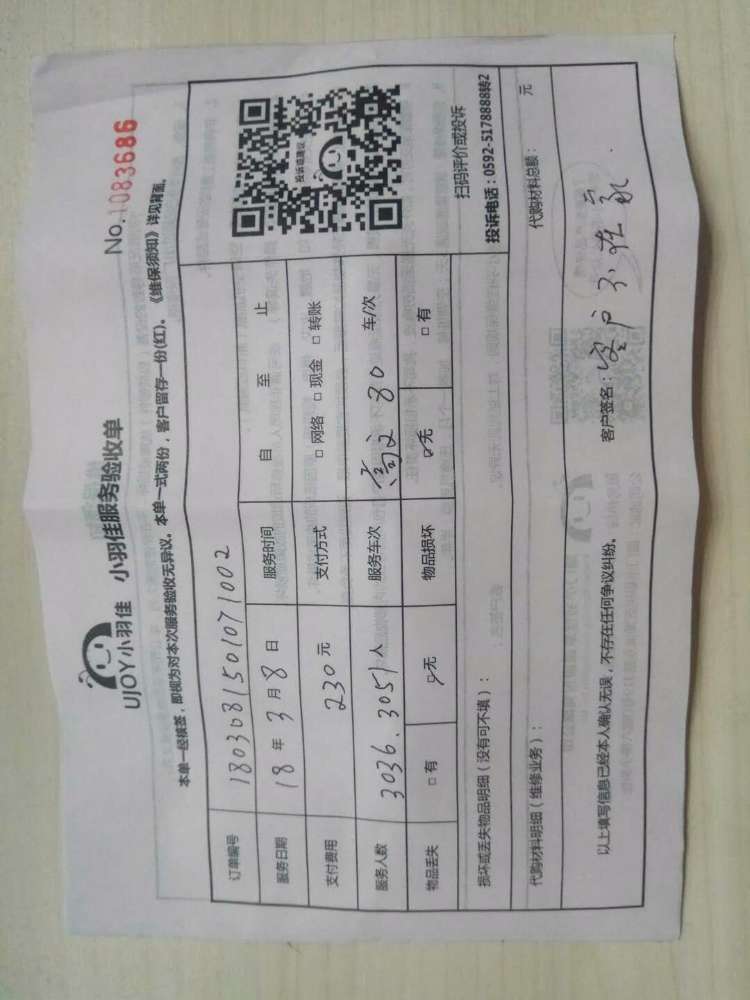 UJOY小羽佳 小羽佳服务验收单
No.1083686
本单一经核签，即视为对本次服务验收无异议。本单一式两份，客户留存一份(红)。《维保须知》详见背面。
订单编号 180308150107 1002
服务日期 18 年 3 月 8 日 服务时间 自 至 止
支付费用 230 元 支付方式 □网络 □现金 □转账
服务人数 3036.3051 人 服务车次 80 车/次
物品丢失 □有 ☑无 物品损坏 ☑无 □有
投诉或建议
扫码评价或投诉
投诉电话：0592-5178888转2
损坏或丢失物品明细（没有可不填）：
代购材料明细（维修业务）： 代购材料总额： 元
以上填写信息已经本人确认无误，不存在任何争议纠纷。 客户签名：客户不在家